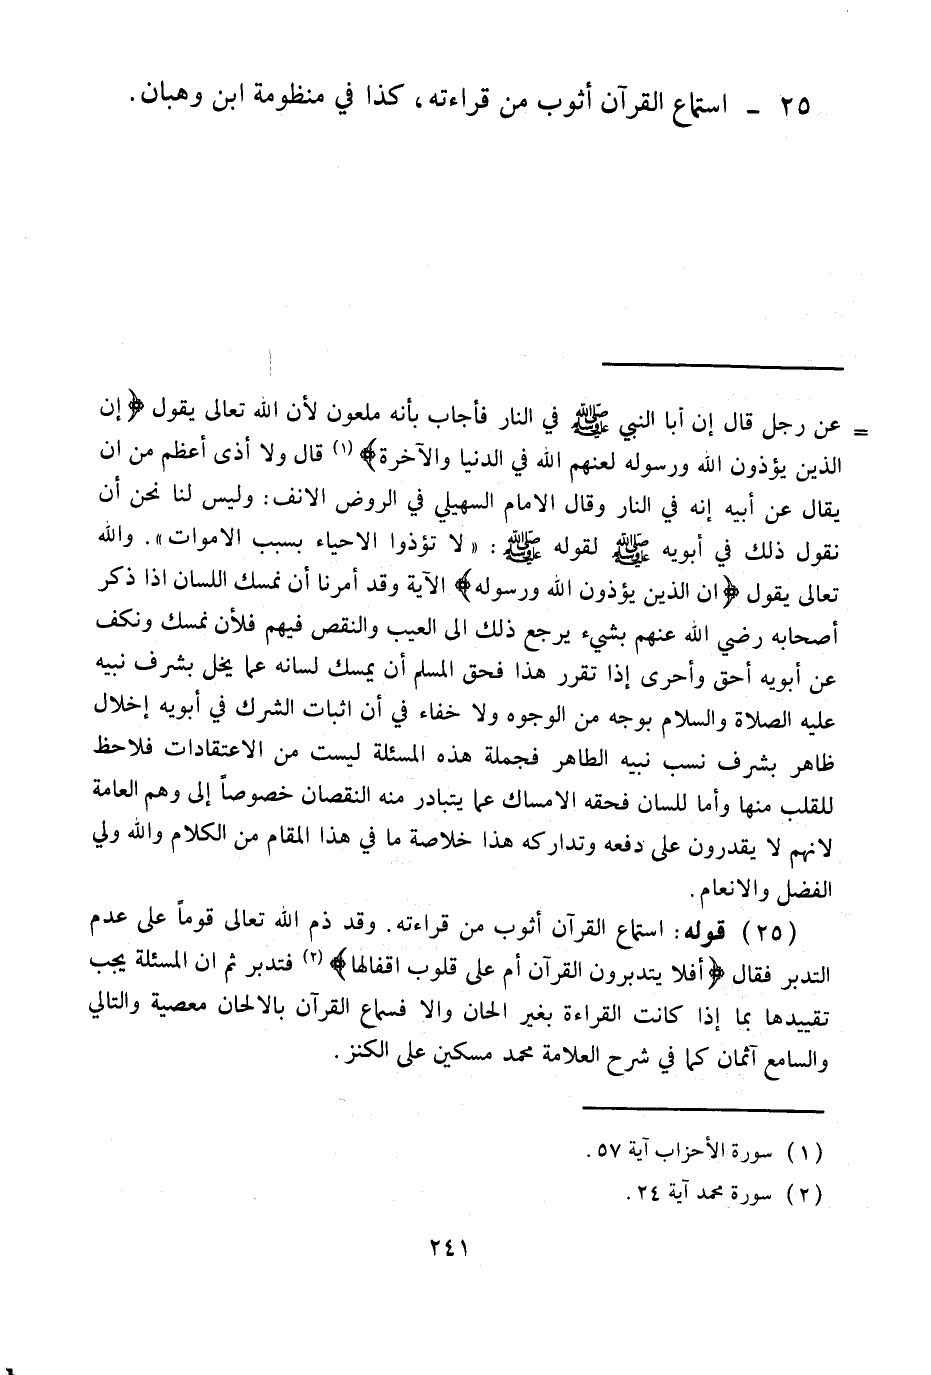 ٢٥ ـ استماع القرآن أثوب من قراءته، كذا في منظومة ابن وهبان.
= عن رجل قال إن أبا النبي ﷺ في النار فأجاب بأنه ملعون لأن الله تعالى يقول ﴿إن
الذين يؤذون الله ورسوله لعنهم الله في الدنيا والآخرة﴾ (١) قال ولا أذى أعظم من ان
يقال عن أبيه إنه في النار وقال الامام السهيلي في الروض الانف: وليس لنا نحن أن
نقول ذلك في أبويه ﷺ لقوله ﷺ: «لا تؤذوا الاحياء بسبب الاموات». والله
تعالى يقول ﴿ان الذين يؤذون الله ورسوله﴾ الآية وقد أمرنا أن نمسك اللسان اذا ذكر
أصحابه رضي الله عنهم بشيء يرجع ذلك الى العيب والنقص فيهم فلأن نمسك ونكف
عن أبويه أحق وأحرى إذا تقرر هذا فحق المسلم أن يمسك لسانه عما يخل بشرف نبيه
عليه الصلاة والسلام بوجه من الوجوه ولا خفاء في أن اثبات الشرك في أبويه إخلال
ظاهر بشرف نسب نبيه الطاهر فجملة هذه المسئلة ليست من الاعتقادات فلاحظ
للقلب منها وأما للسان فحقه الامساك عما يتبادر منه النقصان خصوصاً إلى وهم العامة
لانهم لا يقدرون على دفعه وتداركه هذا خلاصة ما في هذا المقام من الكلام والله ولي
الفضل والانعام.
(٢٥) قوله: استماع القرآن أثوب من قراءته. وقد ذم الله تعالى قوماً على عدم
التدبر فقال ﴿أفلا يتدبرون القرآن أم على قلوب اقفالها﴾ (٢) فتدبر ثم ان المسئلة يجب
تقييدها بما إذا كانت القراءة بغير الحان والا فسماع القرآن بالالحان معصية والتالي
والسامع آثمان كما في شرح العلامة محمد مسكين على الكنز.
(١) سورة الأحزاب آية ٥٧.
(٢) سورة محمد آية ٢٤.
٢٤١